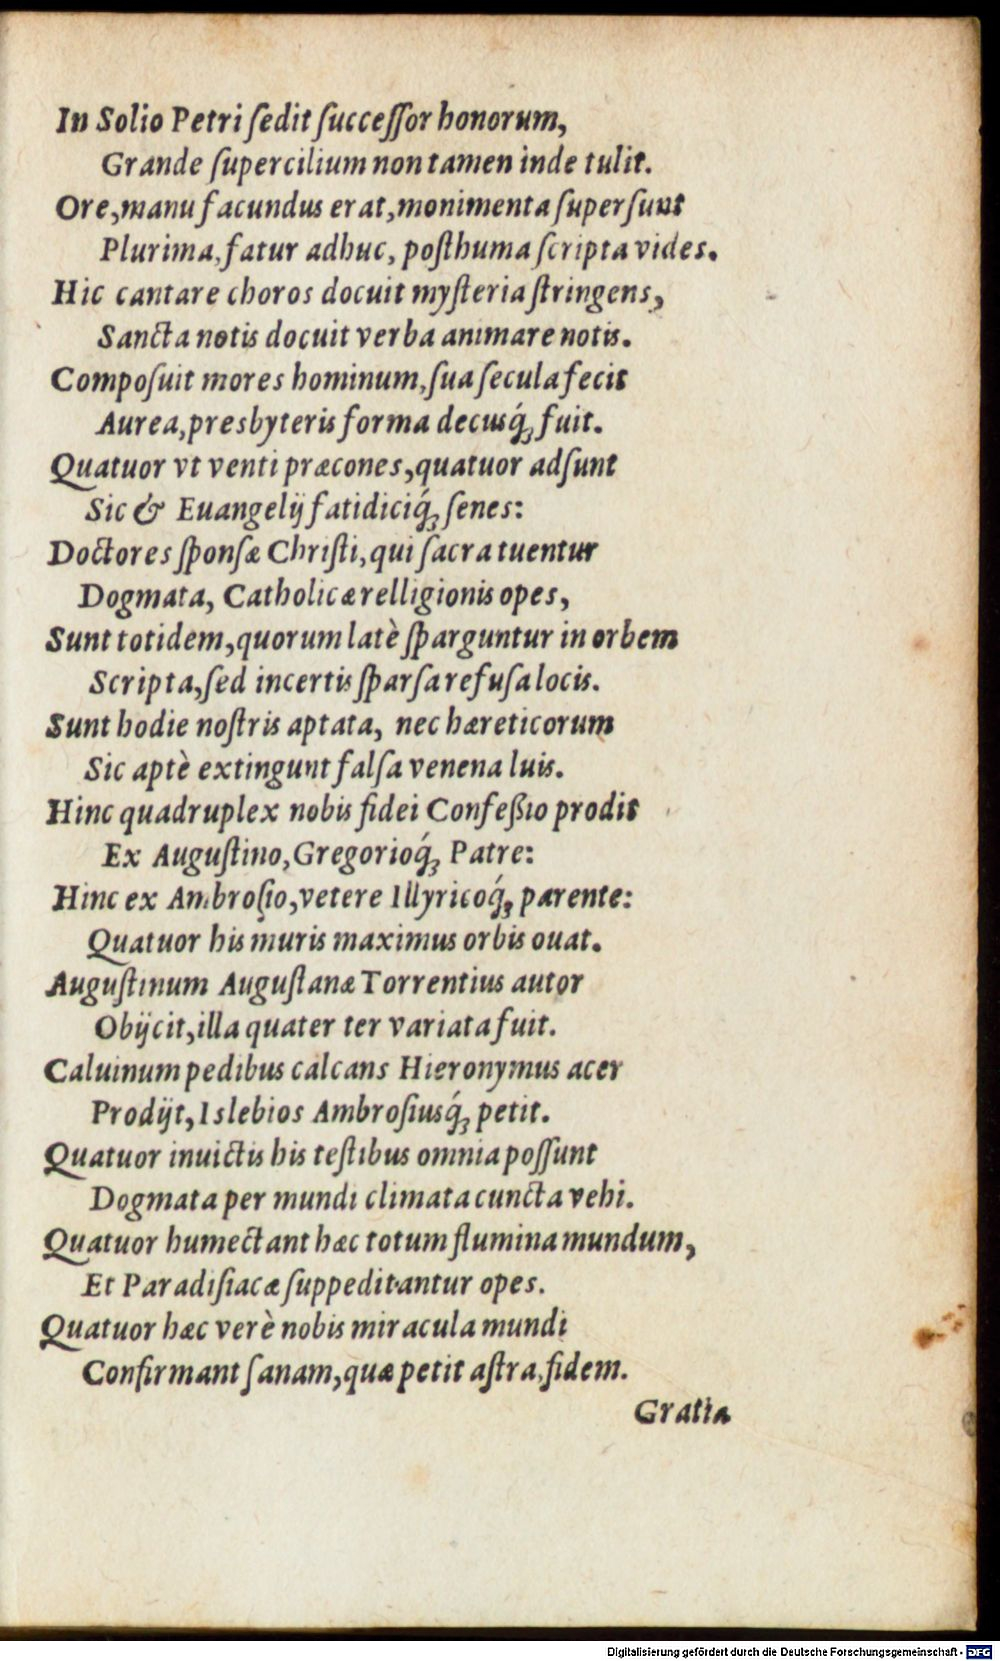 In Solio Petri ſedit ſucceſſor honorum,
Grande ſupercilium non tamen inde tulit.
Ore, manu facundus erat, monimenta ſuperſunt
Plurima, fatur adhuc, poſthuma ſcripta vides.
Hic cantare choros docuit myſteria ſtringens,
Sancta notis docuit verba animare notis.
Compoſuit mores hominum, ſua ſecula fecit
Aurea, presbyteris forma decusq́ꝫ fuit.
Quatuor vt venti præcones, quatuor adſunt
Sic & Euangelij fatidiciq́ꝫ ſenes:
Doctores ſponſæ Chriſti, qui ſacra tuentur
Dogmata, Catholicæ relligionis opes,
Sunt totidem, quorum latè ſparguntur in orbem
Scripta, ſed incertis ſparſa refuſa locis.
Sunt hodie noſtris aptata, nec hæreticorum
Sic aptè extingunt falſa venena luis.
Hinc quadruplex nobis fidei Confeßio prodit
Ex Auguſtino, Gregorioq́ꝫ Patre:
Hinc ex Ambroſio, vetere Illyricoq́ꝫ parente:
Quatuor his muris maximus orbis ouat.
Auguſtinum Auguſtanæ Torrentius autor
Obijcit, illa quater ter variata fuit.
Caluinum pedibus calcans Hieronymus acer
Prodijt, Islebios Ambroſiusq́ꝫ petit.
Quatuor inuictis his teſtibus omnia poſſunt
Dogmata per mundi climata cuncta vehi.
Quatuor humectant hæc totum flumina mundum,
Et Paradiſiacæ ſuppeditantur opes.
Quatuor hæc verè nobis miracula mundi
Confirmant ſanam, quæ petit aſtra, fidem.
Gratia
Digitalisierung gefördert durch die Deutsche Forschungsgemeinschaft - DFG